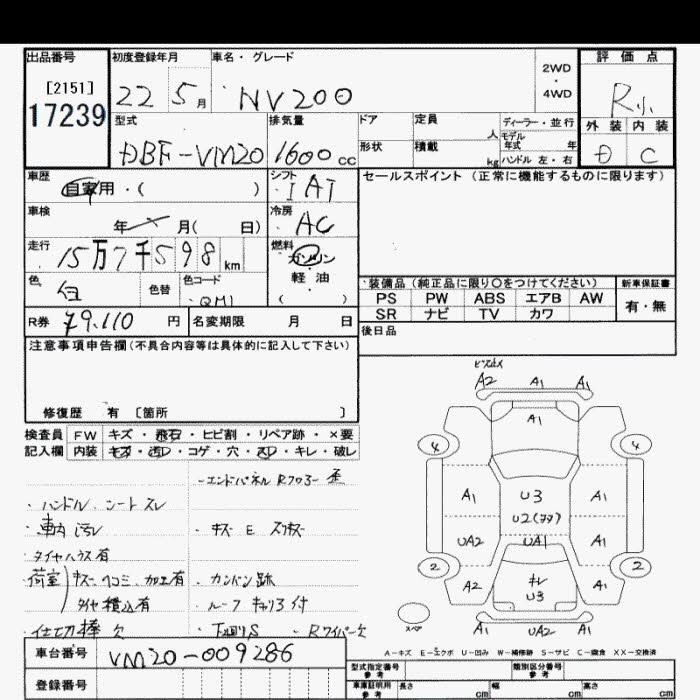 出品番号 初度登録年月 車名・グレード 2WD・4WD 評価点
[2151]
17239
22 5月 NV200 R小
型式 排気量 ドア 定員 人 ディーラー・並行 外装 内装
DBF-VM20 1600cc 形状 積載 kg モデル年式 年 ハンドル 左・右 D C
車歴 自家用・( ) シフト IAT セールスポイント(正常に機能するものに限ります)
車検 年 月( 日) 冷房 AC
走行 15万7千598km 燃料 ガソリン
軽・油
( )
色 白 色替 色コード QM1
装備品(純正品に限り○をつけてください) 新車保証書
PS PW ABS エアB AW 有・無
SR ナビ TV カワ
R券 79.110円 名変期限 月 日 後日品
注意事項申告欄(不具合内容等は具体的に記入して下さい)
修復歴 有 〔箇所 〕
検査員 FW キズ・飛石・ヒビ割・リペア跡・×要
記入欄 内装 キズ・汚レ・コゲ・穴・スレ・キレ・破レ
・エンドパネル Rフロアー 歪
・ハンドル シート スレ
・車内 汚レ ・キズ E
・タイヤハウス有
・荷室 キズ ヘコミ 加工有 ・カンバン跡
タイヤ積込有 ・ルーフ キャリア付
・仕切棒 欠 ・下廻りS ・Rワイパー欠
ビス止メ
A2 A1 A1
A1
4 4
A1 U3 A1
U2(アア)
UA2 UA1 A1
2 2
A2 キレ A1
U3
スペア A1 UA2 A1
A-キズ E-エクボ U-凹み W-補修跡 S-サビ C-腐食 XX-交換済
車台番号 VM20-009286
登録番号
型式指定番号 参考 類別区分番号 参考
車庫証明用 参考 長さ cm 幅 cm 高さ cm